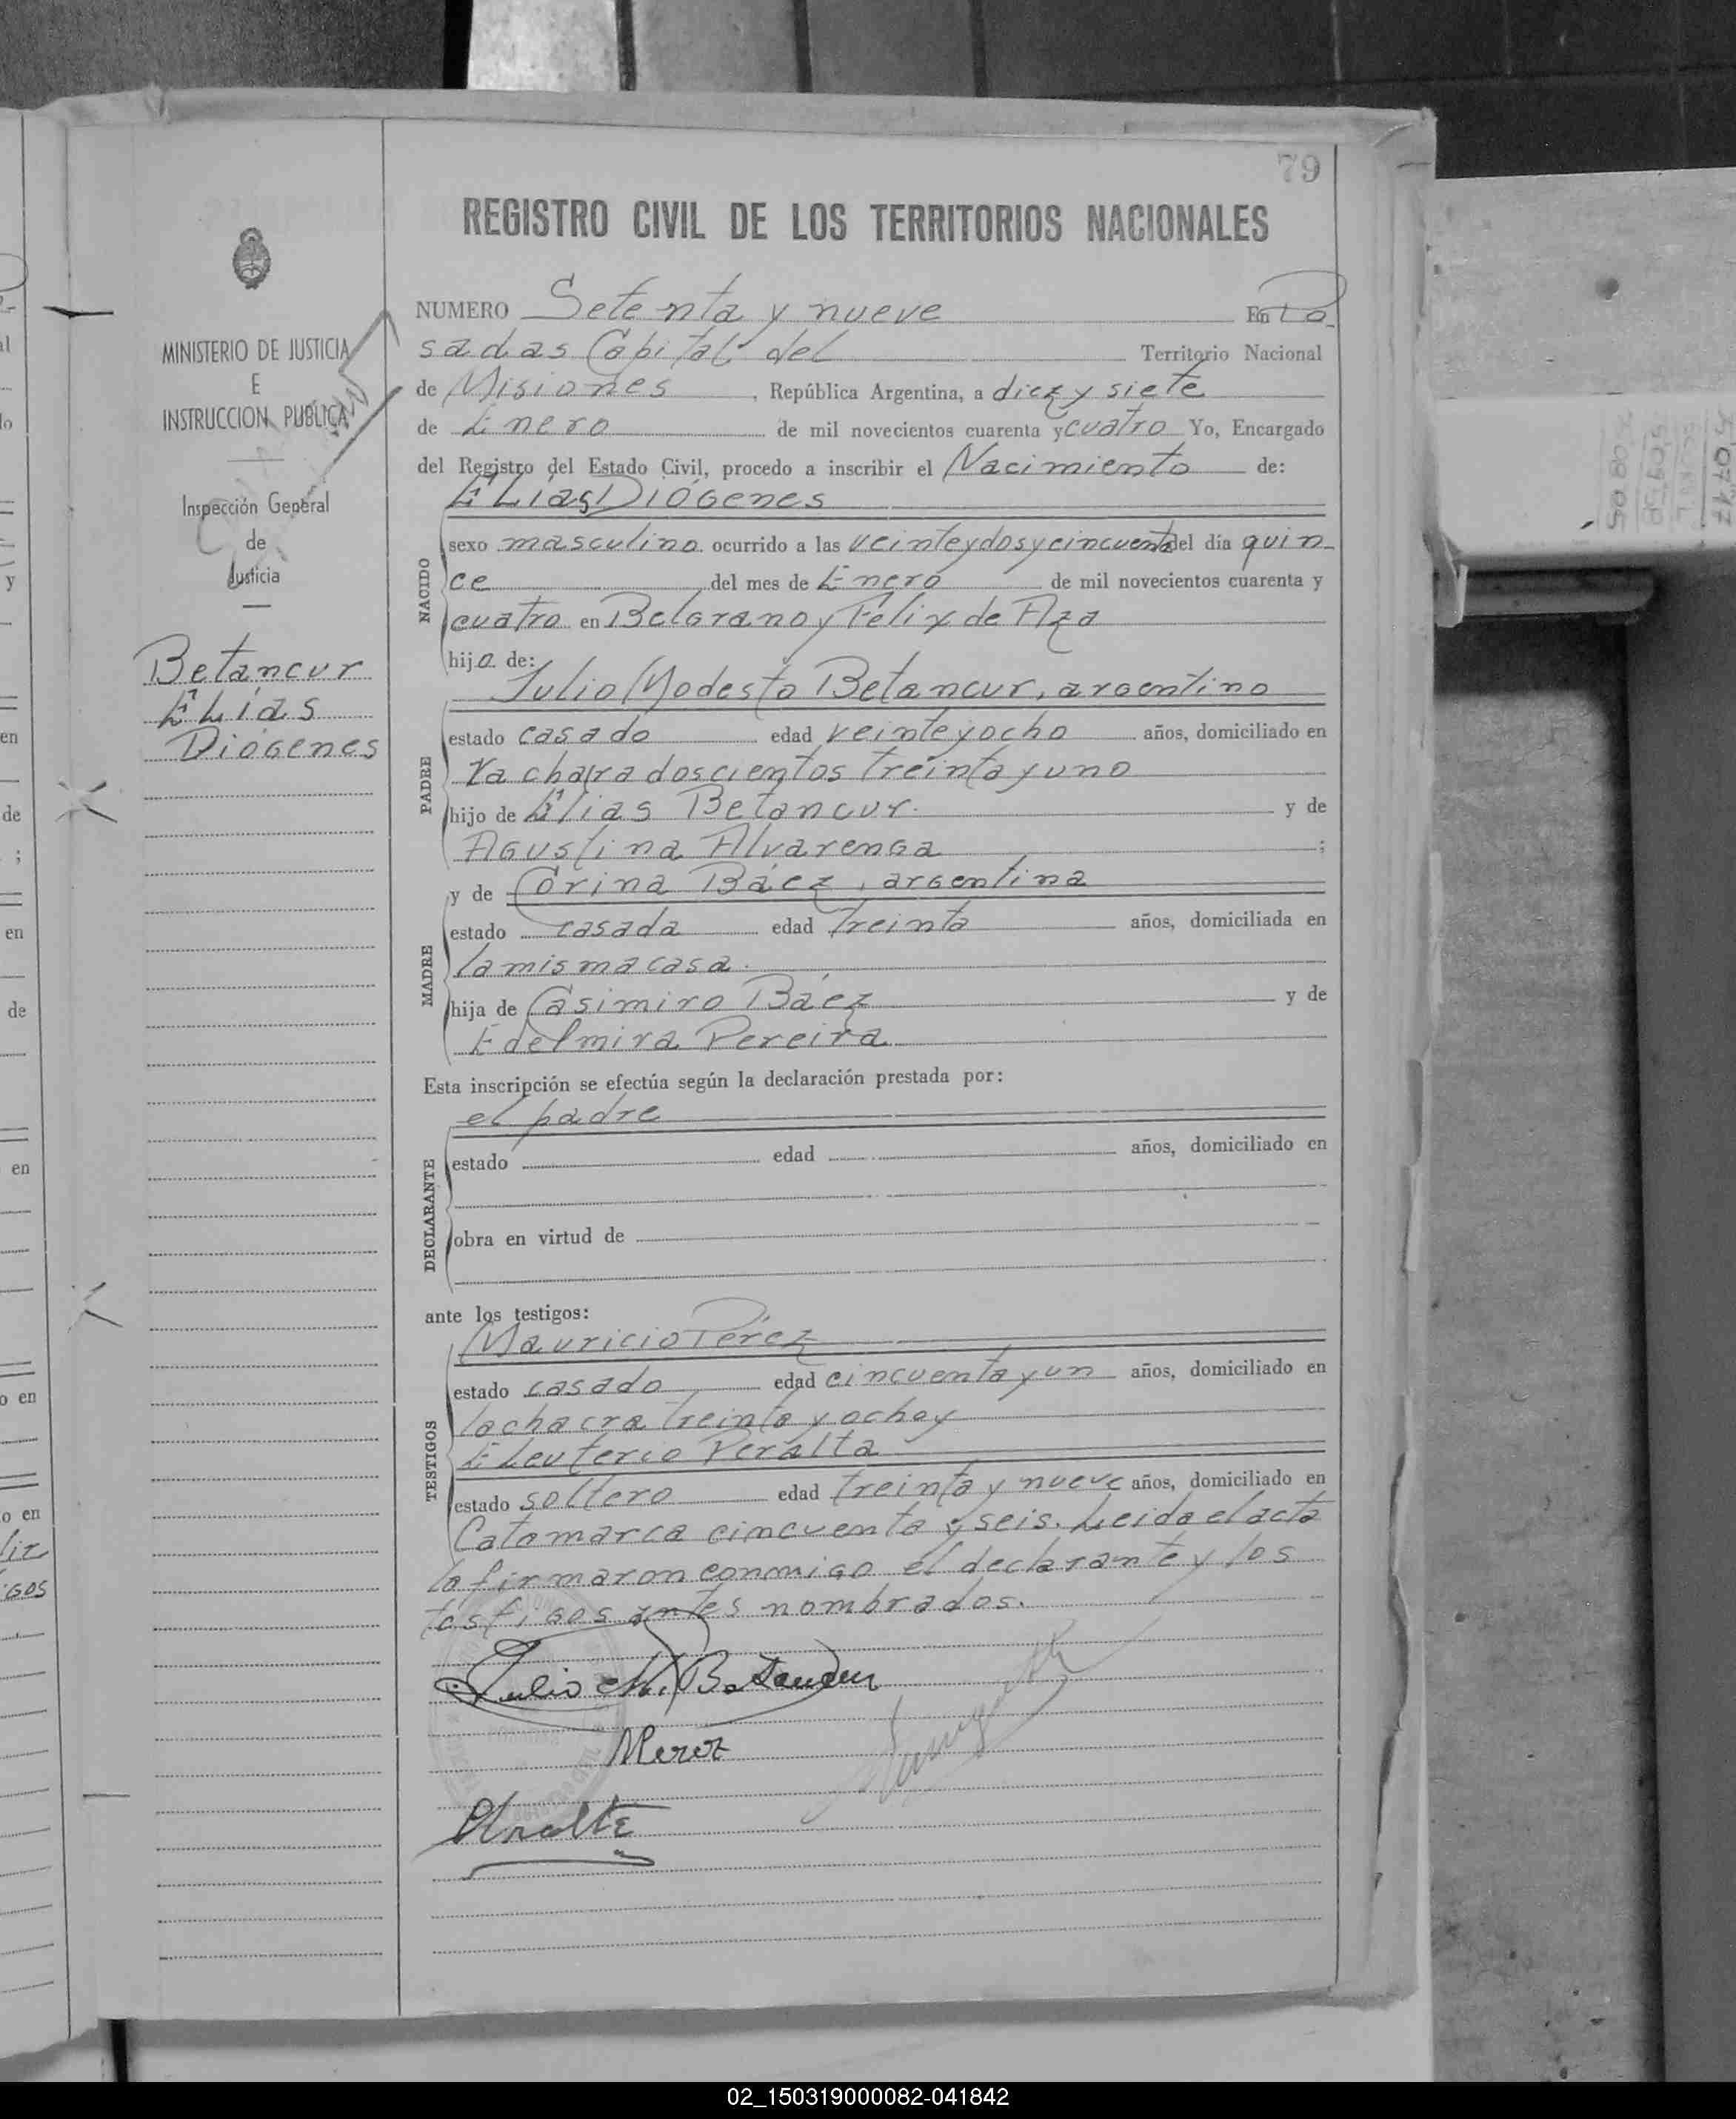 79
REGISTRO CIVIL DE LOS TERRITORIOS NACIONALES
NUMERO Setenta y nueve En Po
sadas Capital del Territorio Nacional
de Misiones, República Argentina, a diez y siete
de Enero de mil novecientos cuarenta y cuatro Yo, Encargado
del Registro del Estado Civil, procedo a inscribir el Nacimiento de:
Elías Diógenes
NACIDO
sexo masculino ocurrido a las veinte y dos y cincuenta del día quin
ce del mes de Enero de mil novecientos cuarenta y
cuatro en Belgrano y Félix de Aza
hijo de:
Julio Modesto Betancur, argentino
PADRE
estado casado edad veinte y ocho años, domiciliado en
la chacra doscientos treinta y uno
hijo de Elías Betancur y de
Agustina Alvarenga ;
y de Corina Báez, argentina
MADRE
estado casada edad treinta años, domiciliada en
la misma casa.
hija de Casimiro Báez y de
Edelmira Pereira
Esta inscripción se efectúa según la declaración prestada por:
el padre
DECLARANTE
estado edad años, domiciliado en
obra en virtud de
ante los testigos:
Mauricio Pérez
TESTIGOS
estado casado edad cincuenta y un años, domiciliado en
la chacra treinta y ocho y
Eleuterio Peralta
estado soltero edad treinta y nueve años, domiciliado en
Catamarca cincuenta y seis. Leída el acta
la firmaron conmigo el declarante y los
testigos antes nombrados.
Julio M. Betancur
MPerez
MINISTERIO DE JUSTICIA
E
INSTRUCCION PUBLICA
Inspección General
de
Justicia
Betancur
Elías
Diógenes
02_150319000082-041842